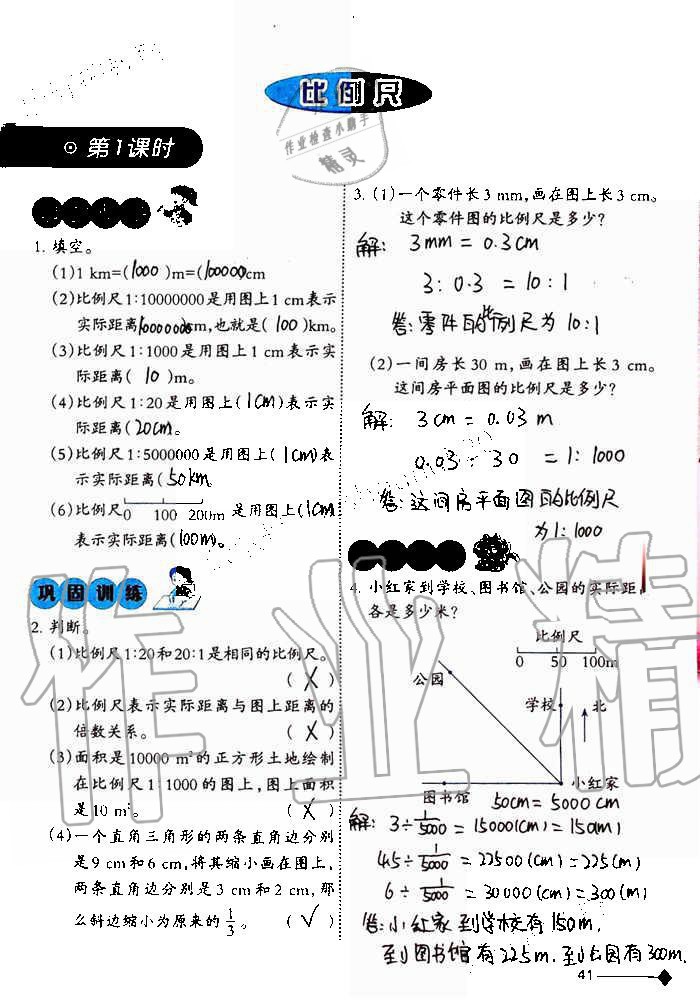 比例尺
作业检查小助手
精灵
第1课时
1. 填空。
(1)1 km=(1000)m=(100000)cm
(2)比例尺1:10000000是用图上1 cm表示
实际距离(10000000)cm,也就是(100)km。
(3)比例尺1:1000是用图上1 cm表示实
际距离(10)m。
(4)比例尺1:20是用图上(1cm)表示实
际距离(20cm)。
(5)比例尺1:5000000是用图上(1cm)表
示实际距离(50km)
(6)比例尺 0 100 200m 是用图上(1cm)
表示实际距离(100m)。
巩固训练
2. 判断。
(1)比例尺1:20和20:1是相同的比例尺。
(X)
(2)比例尺表示实际距离与图上距离的
倍数关系。(X)
(3)面积是10000 m²的正方形土地绘制
在比例尺1:1000的图上,图上面积
是10 m²。(X)
(4)一个直角三角形的两条直角边分别
是9 cm和6 cm,将其缩小画在图上,
两条直角边分别是3 cm和2 cm,那
么斜边缩小为原来的1/3。(√)
3. (1)一个零件长3 mm,画在图上长3 cm。
这个零件图的比例尺是多少?
解: 3mm = 0.3cm
3:0.3 = 10:1
答:零件的比例尺为10:1
(2)一间房长30 m,画在图上长3 cm。
这间房平面图的比例尺是多少?
解: 3cm = 0.03 m
0.03:30 = 1:1000
答:这间房平面图的比例尺
为1:1000
4. 小红家到学校、图书馆、公园的实际距
各是多少米?
比例尺
0 50 100m
公园
学校
北
图书馆
小红家
50cm=5000cm
解: 3÷1/5000=15000(cm)=150(m)
4.5÷1/5000=22500(cm)=225(m)
6÷1/5000=30000(cm)=300(m)
答:小红家到学校有150m.
到图书馆有225m.到公园有300m.
41
作业精